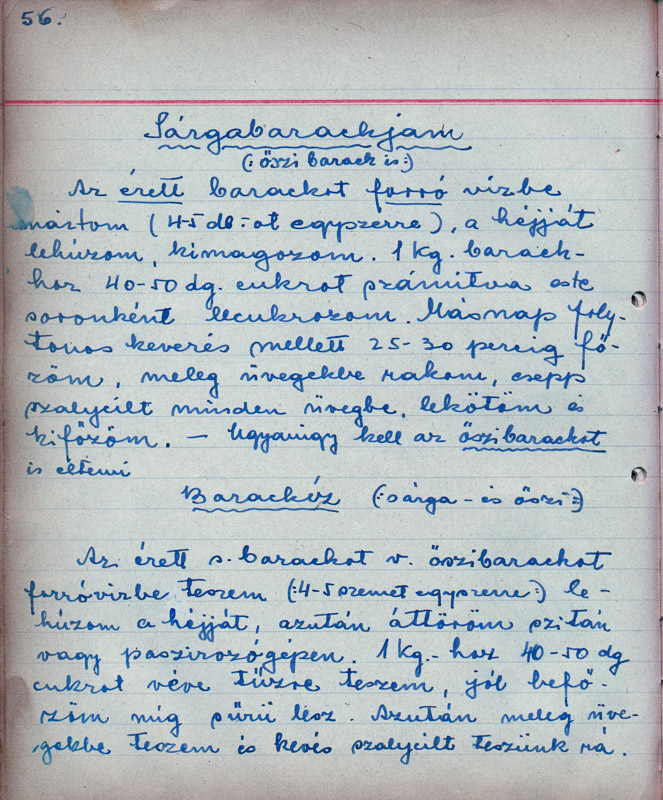 56.
Sárgabarackjam
(: őszi barack is :)
Az érett barackot forró vizbe
mártom (4-5 db-ot egyszerre), a héjját
lehúzom, kimagozom. 1 kg. barack-
hoz 40-50 dg. cukrot számitva este
soronként lecukrozom. Másnap foly-
tonos keverés mellett 25-30 percig fő-
zöm, meleg üvegekbe rakom, csepp
szalycilt minden üvegbe, lekötöm és
kifőzöm. — Ugyanúgy kell az őszibarackot
is eltenni
Barackíz (: sárga - és őszi :)
Az érett s. barackot v. őszibarackot
forróvizbe teszem (: 4-5 szemet egyszerre :) le-
húzom a héjját, azután áttöröm szitán
vagy paszirozógépen. 1 kg.-hoz 40-50 dg
cukrot véve tűzre teszem, jól befő-
zöm mig sürü lesz. Azután meleg üve-
gekbe teszem és kevés szalycilt teszünk rá.